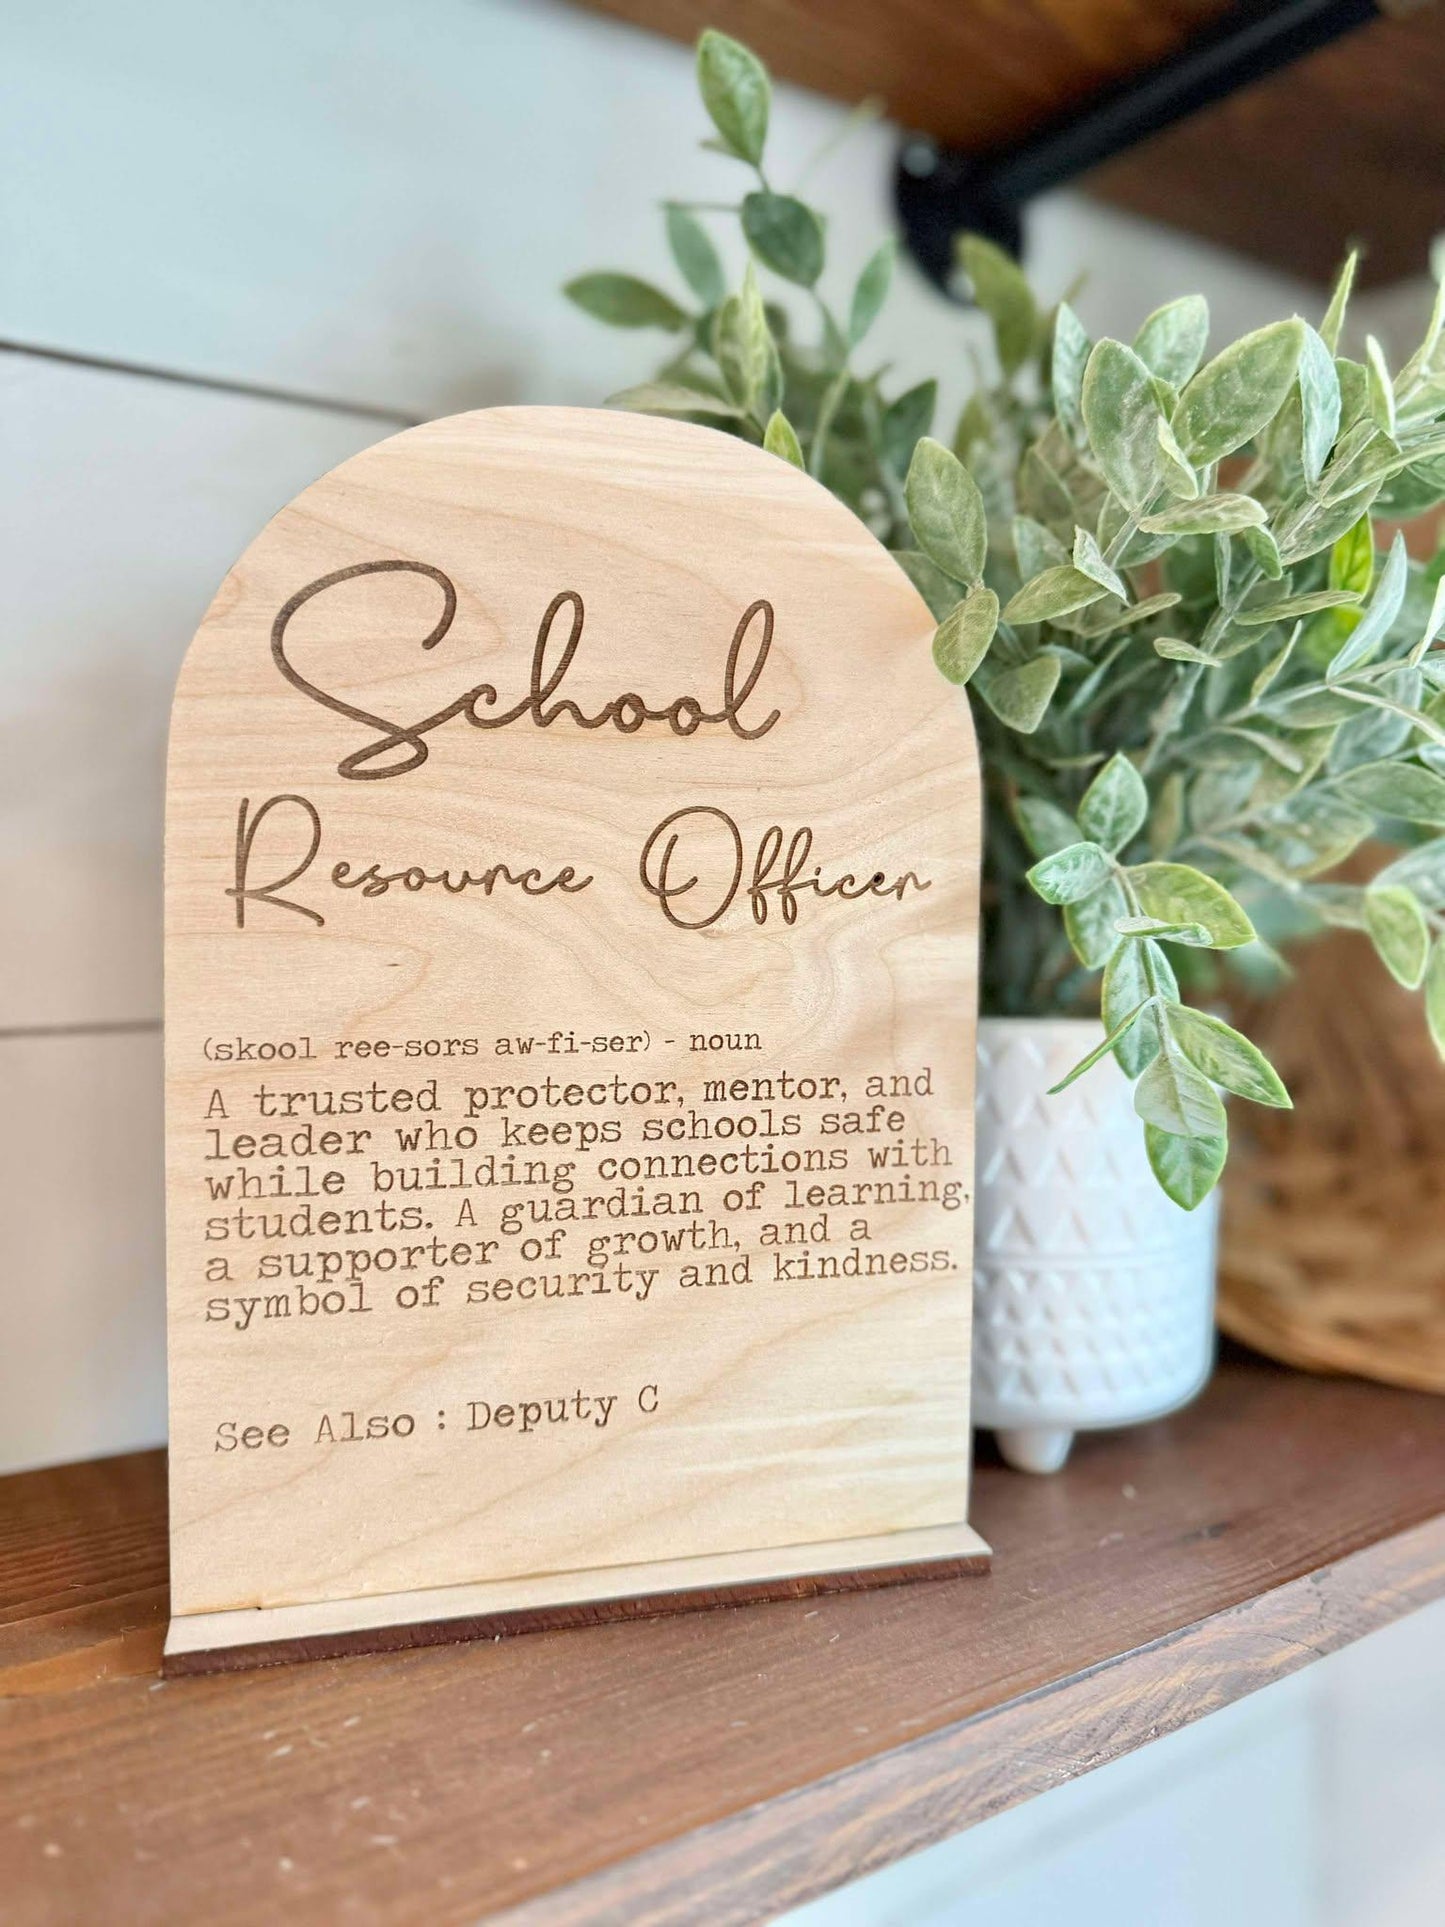 School
Resource Officer
(skool ree-sors aw-fi-ser) - noun
A trusted protector, mentor, and
leader who keeps schools safe
while building connections with
students. A guardian of learning,
a supporter of growth, and a
symbol of security and kindness.
See Also : Deputy C